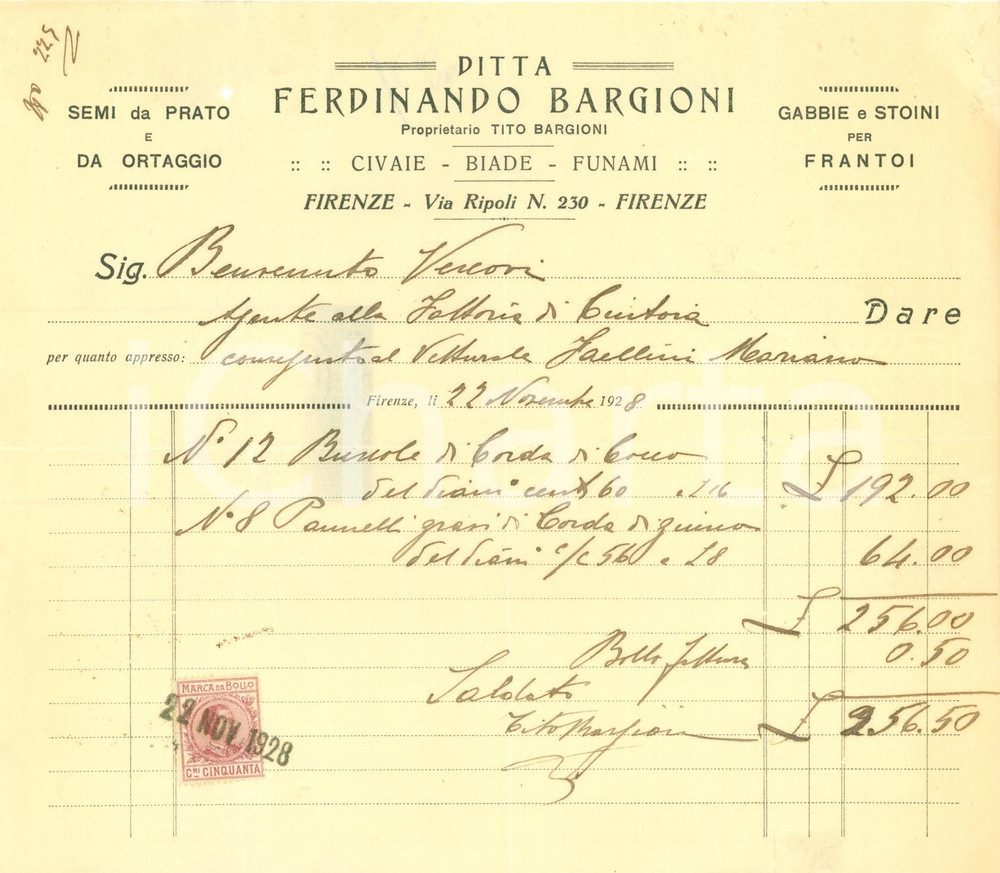 Ago 225
DITTA
FERDINANDO BARGIONI
Proprietario TITO BARGIONI
:: :: CIVAIE - BIADE - FUNAMI :: ::
FIRENZE - Via Ripoli N. 230 - FIRENZE
SEMI da PRATO
E
DA ORTAGGIO
GABBIE e STOINI
PER
FRANTOI
Sig. Benvenuto Vescovi
Agente alla Fattoria di Cintoia Dare
per quanto appresso: al Vetturale Mariano
Firenze, li 22 Novembre 1928
N° 12 Buscole di Corda di Cocco
del diam° cent 60 a £ 16 £ 192.00
N° 8 Pannelli di Corda di giunco
del diam c/c 56 a £ 8 64.00
£ 256.00
Bollo fattura 0.50
Saldato
Tito Bargioni £ 256.50
MARCA DA BOLLO
CMI CINQUANTA
22 NOV. 1928
iCharta